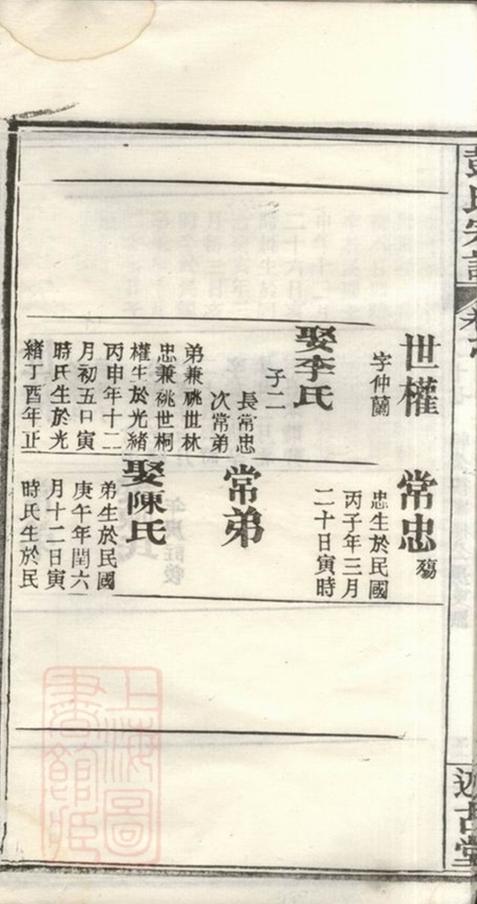 氏宗譜
卷
古堂
世權
字仲蘭
娶李氏
子二
長常忠
次常弟
弟兼祧世林
忠兼祧世桐
權生於光緒
丙申年十二
月初五日寅
時氏生於光
緒丁酉年正
常忠 殤
忠生於民國
丙子年三月
二十日寅時
常弟
娶陳氏
弟生於民國
庚午年閏六
月十二日寅
時氏生於民
上海圖
書館藏